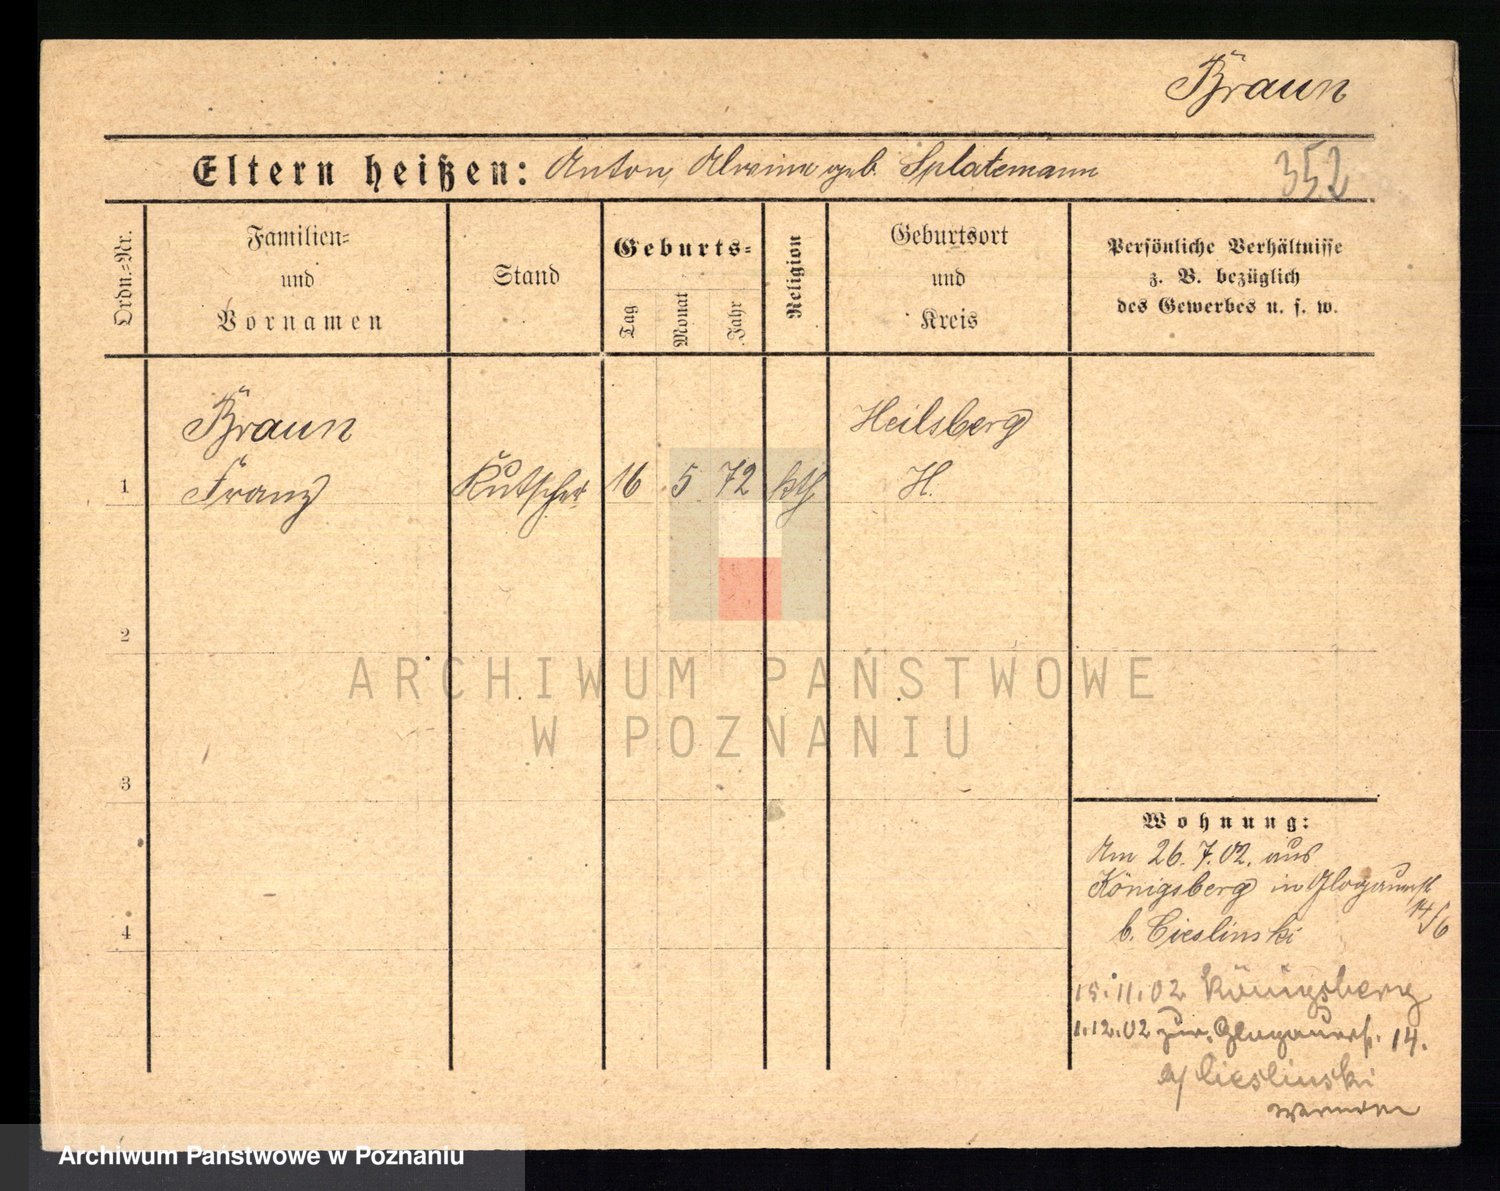 Braun
Eltern heißen: Anton, Alwine geb. Splatemann
352
Ordn.=Nr.
Familien=
und
Vornamen
Stand
Geburts=
Tag
Monat
Jahr
Religion
Geburtsort
und
Kreis
Persönliche Verhältnisse
z. B. bezüglich
des Gewerbes u. s. w.
Braun
Heilsberg
1 Franz Kutscher 16 5 72 kth H.
2
3
4
ARCHIWUM PAŃSTWOWE
W POZNANIU
Wohnung:
Am 26.7.02. aus
Königsberg in Glogauerstr
14/6
b. Cieslinski
15.11.02 Königsberg
1.12.02 zur. Glogauerst. 14.
Cieslinski
Archiwum Państwowe w Poznaniu